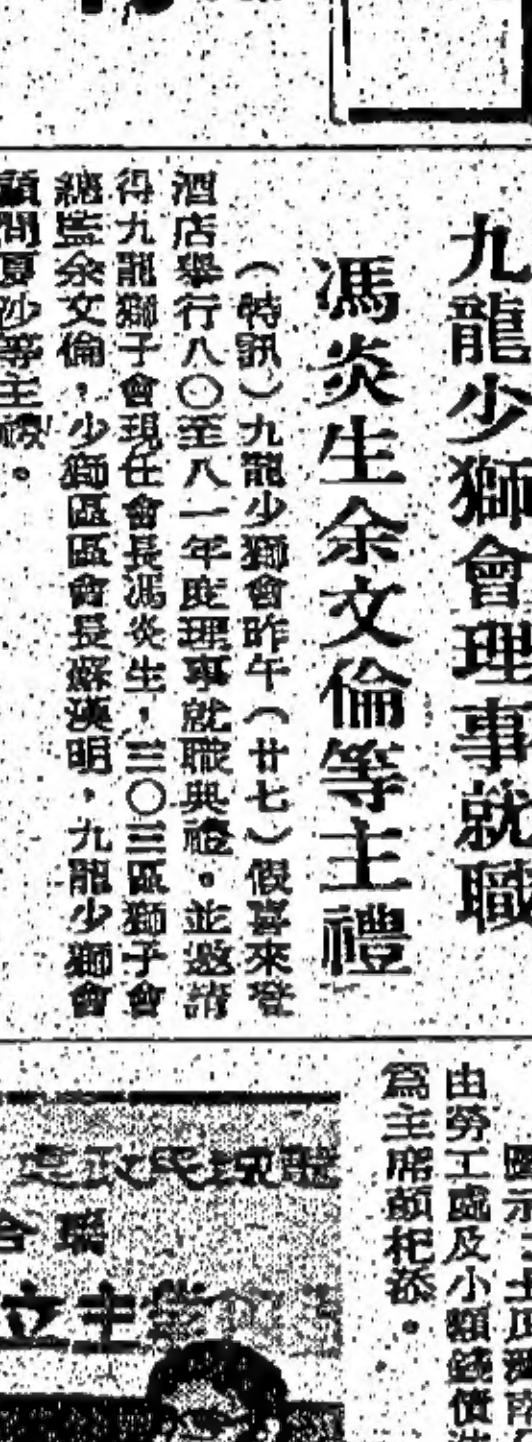 九龍少獅會理事就職
馮炎生余文倫等主禮
（特訊）九龍少獅會昨午（廿七）假喜來登
酒店舉行八〇至八一年度理事就職典禮。並邀請
得九龍獅子會現任會長馮炎生，三〇三區獅子會
總監余文倫，少獅區區會長蘇漢明，九龍少獅會
顧問夏沙等主禮。
由勞工處及小額錢債
為主席顏杞添。